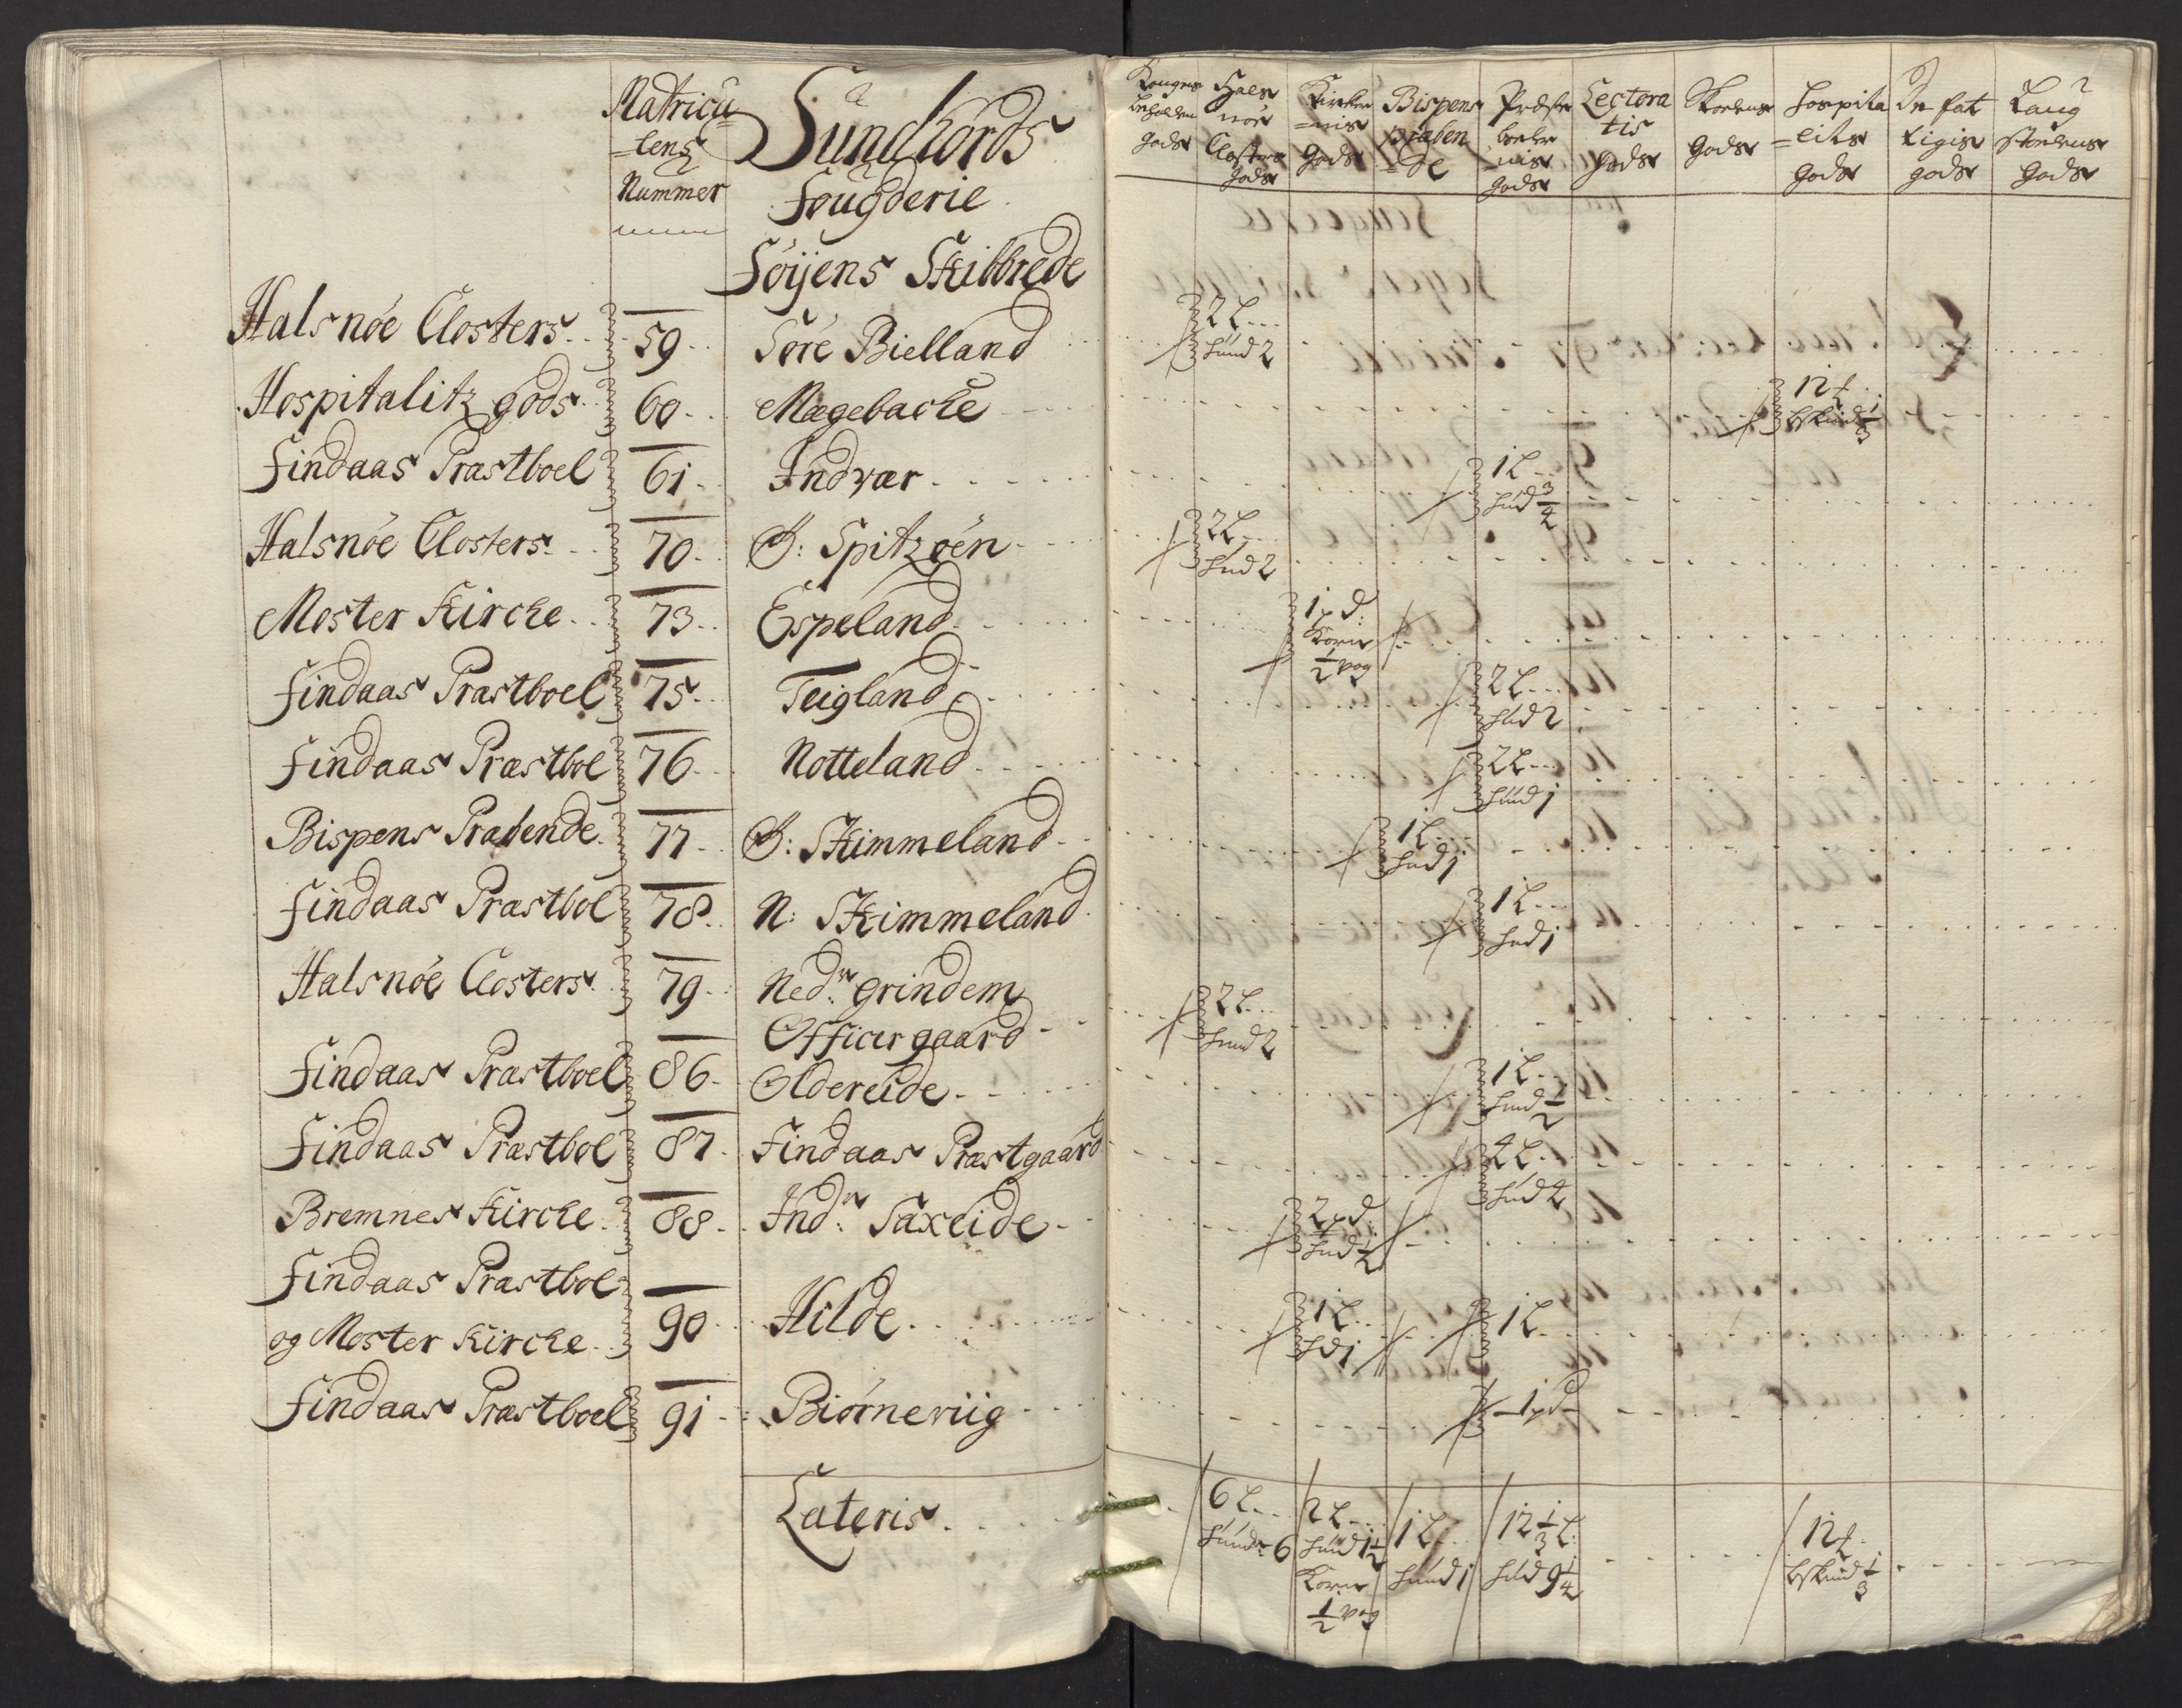 Matricu
=lens
Nummer
Sundhords
Fougderie
Föijens Skibbrede
Halsnöe Closters 59 Söre Bielland
Hospitalitz gods 60 Mægebacke
Findaas Præstboel 61 Indvær
Halsnöe Closters 70 O: Spitzöen
Moster Kirche 73 Espeland
Findaas Præstboel 75 Teigland
Findaas Præstbol 76 Notteland
Bispens Præbende 77 O: Skimmeland
Findaas Præstbol 78 N: Skimmeland
Halsnöe Closters 79 Nedr: Grindem
Officer gaard
Findaas Præstboel 86 Oldereide
Findaas Præstbol 87 Findaas Præstgaard
Bremnes Kirche 88 Indr: Saxeide
Findaas Præstbol
og Moster Kirche 90 Hilde
Findaas Præstboel 91 Biörneviig
Lateris
Kongens
beholden
gods
Hals
nöe
Closters
gods
Kircker
=nis
gods
Bispens
Præben
=de
Præste
boeler
nis
gods
Lectora
tis
gods
gods
Hospita
=lits
gods
De fat
tigis
gods
Laug
stolens
gods
2 L
hund 2
12
1/3
1 L
hud 3/4
2 L
hud 2
1 pd:
Korn
1/2 vog
2 L
hud 2
2 L
hud 1
1 L
hud 1
1 L
hud 1
2 L
hud 2
1 L
hud 1/2
4 L
hud 4
2 pd:
hud 1/2
1 L
hd 1
1 L
1 pd
6 L
hunder 6
2 L
hud 1 1/2
Korn
1/2 vog
1 L
hund 1
12 1/3 L:
hud 9 1/4
12
1/3